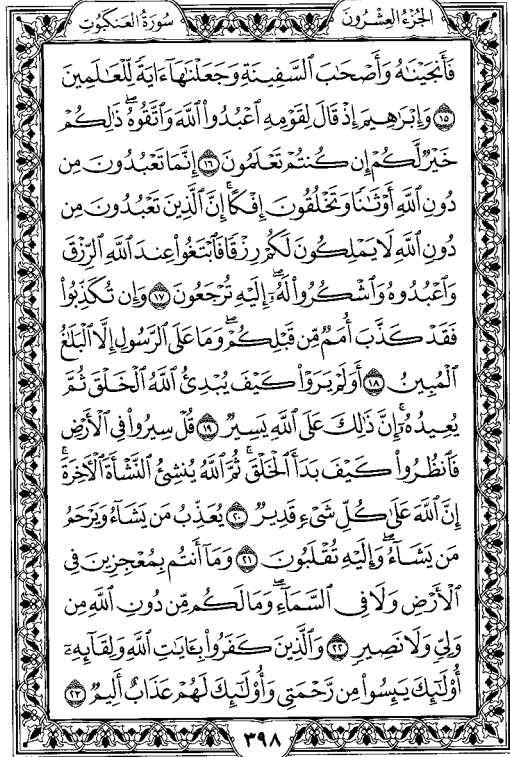 سُورَةُ العَنكَبُوتِ الجُزْءُ العِشْرُونَ
فَأَنجَيْنَٰهُ وَأَصْحَٰبَ ٱلسَّفِينَةِ وَجَعَلْنَٰهَآ ءَايَةً لِّلْعَٰلَمِينَ
١٥ وَإِبْرَٰهِيمَ إِذْ قَالَ لِقَوْمِهِ ٱعْبُدُوا۟ ٱللَّهَ وَٱتَّقُوهُ ۖ ذَٰلِكُمْ
خَيْرٌ لَّكُمْ إِن كُنتُمْ تَعْلَمُونَ ١٦ إِنَّمَا تَعْبُدُونَ مِن
دُونِ ٱللَّهِ أَوْثَٰنًا وَتَخْلُقُونَ إِفْكًا ۚ إِنَّ ٱلَّذِينَ تَعْبُدُونَ مِن
دُونِ ٱللَّهِ لَا يَمْلِكُونَ لَكُمْ رِزْقًا فَٱبْتَغُوا۟ عِندَ ٱللَّهِ ٱلرِّزْقَ
وَٱعْبُدُوهُ وَٱشْكُرُوا۟ لَهُۥٓ ۖ إِلَيْهِ تُرْجَعُونَ ١٧ وَإِن تُكَذِّبُوا۟
فَقَدْ كَذَّبَ أُمَمٌ مِّن قَبْلِكُمْ ۖ وَمَا عَلَى ٱلرَّسُولِ إِلَّا ٱلْبَلَٰغُ
ٱلْمُبِينُ ١٨ أَوَلَمْ يَرَوْا۟ كَيْفَ يُبْدِئُ ٱللَّهُ ٱلْخَلْقَ ثُمَّ
يُعِيدُهُۥٓ ۚ إِنَّ ذَٰلِكَ عَلَى ٱللَّهِ يَسِيرٌ ١٩ قُلْ سِيرُوا۟ فِى ٱلْأَرْضِ
فَٱنظُرُوا۟ كَيْفَ بَدَأَ ٱلْخَلْقَ ۚ ثُمَّ ٱللَّهُ يُنشِئُ ٱلنَّشْأَةَ ٱلْءَاخِرَةَ ۚ
إِنَّ ٱللَّهَ عَلَىٰ كُلِّ شَىْءٍ قَدِيرٌ ٢٠ يُعَذِّبُ مَن يَشَآءُ وَيَرْحَمُ
مَن يَشَآءُ ۖ وَإِلَيْهِ تُقْلَبُونَ ٢١ وَمَآ أَنتُم بِمُعْجِزِينَ فِى
ٱلْأَرْضِ وَلَا فِى ٱلسَّمَآءِ ۖ وَمَا لَكُم مِّن دُونِ ٱللَّهِ مِن
وَلِىٍّ وَلَا نَصِيرٍ ٢٢ وَٱلَّذِينَ كَفَرُوا۟ بِـَٔايَٰتِ ٱللَّهِ وَلِقَآئِهِۦٓ
أُو۟لَٰٓئِكَ يَئِسُوا۟ مِن رَّحْمَتِى وَأُو۟لَٰٓئِكَ لَهُمْ عَذَابٌ أَلِيمٌ ٢٣
٣٩٨